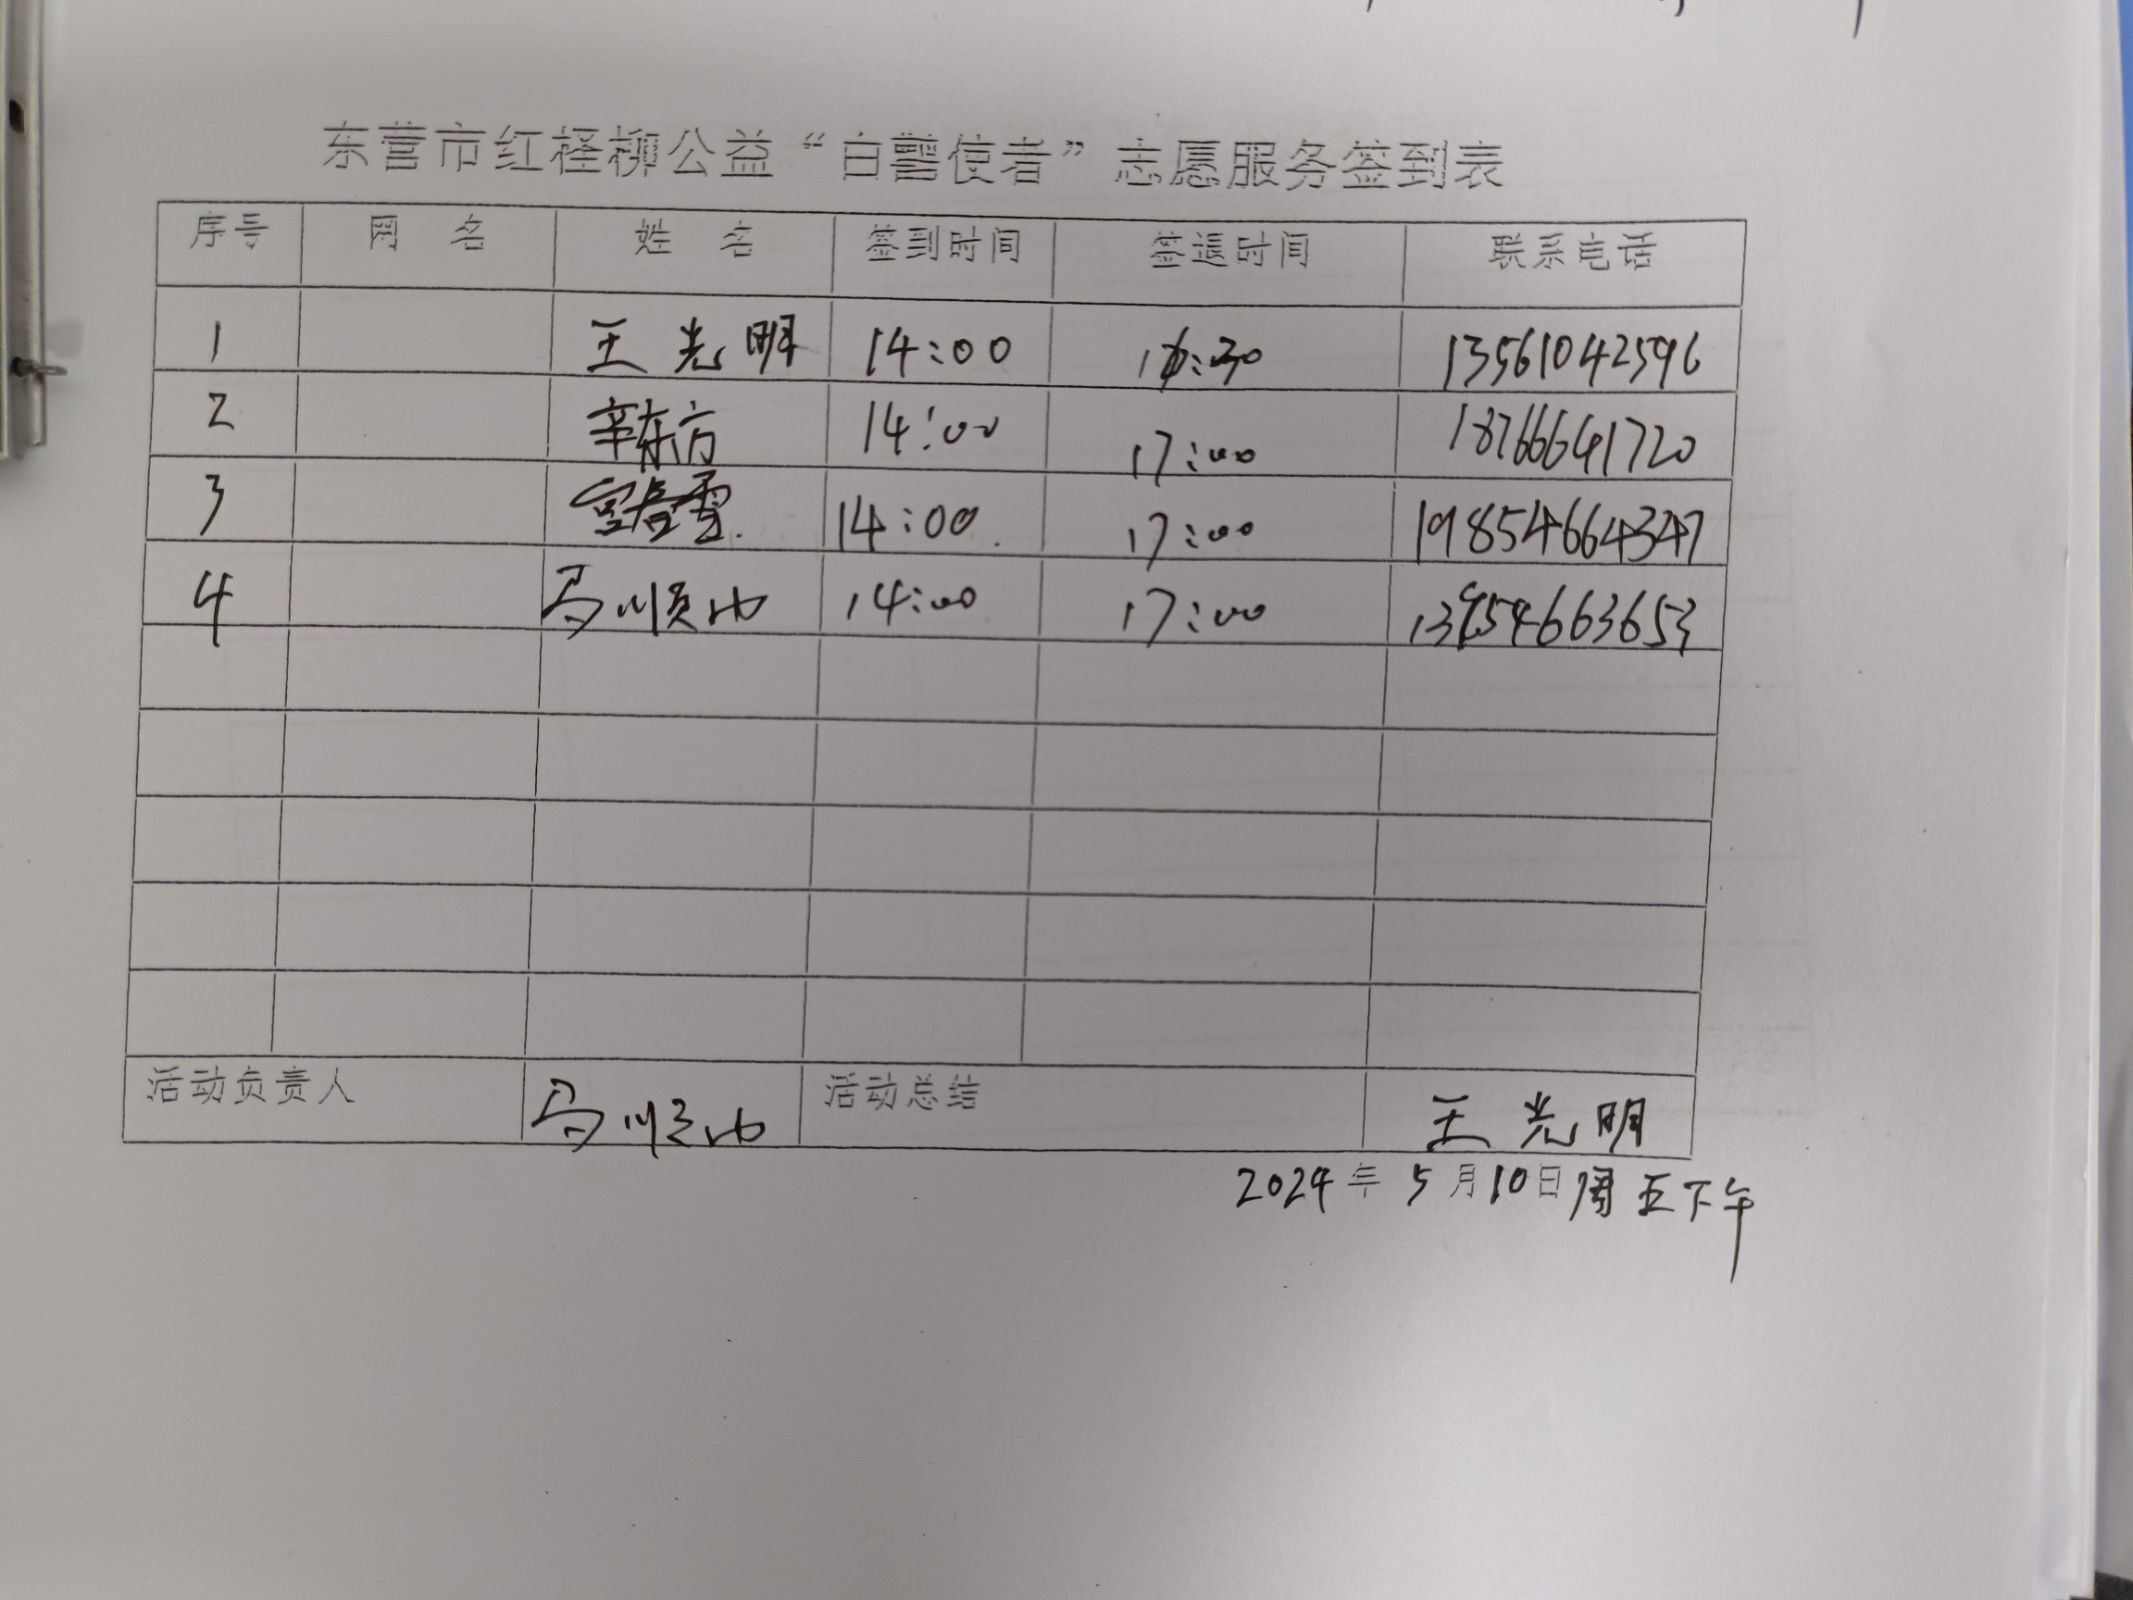 东营市红柽柳公益“白警使者”志愿服务签到表
序号 网 名 姓 名 签到时间 签退时间 联系电话
1 王光明 14:00 13561042596
2 辛东方 14:00 17:00 18766641720
3 14:00 17:00 19854664347
4 马顺 14:00 17:00 13954663653
活动负责人 马顺 活动总结 王光明
2024年5月10日周五下午